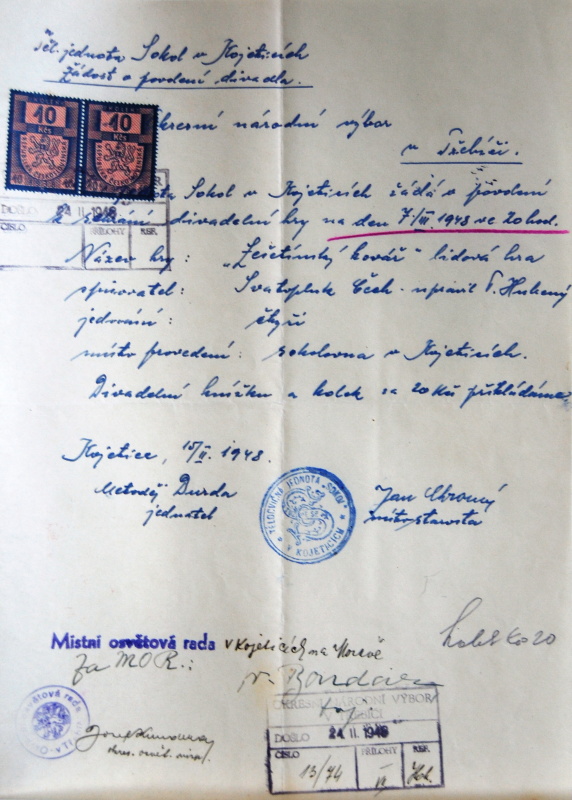 Těl. jednota Sokol v Kojeticích
žádost o povolení divadla.
10 10
Kčs Kčs
okresní národní výbor
v Třebíči.
Sokol v Kojeticích žádá o povolení
k sehrání divadelní hry na den 7/III. 1948 ve 20 hod.
DOŠLO 24 II. 1948
ČÍSLO PŘÍLOHY REF.
Název hry: „Lešetínský kovář" lidová hra
spisovatel: Svatopluk Čech - upravil
jednání: čtyři
místo provedení: sokolovna v Kojeticích.
Divadelní knížku a kolek za 20 Kčs přikládáme.
Kojetice, 15/II. 1948.
Metoděj Durda
jednatel
TĚLOCVIČNÁ JEDNOTA "SOKOL"
V KOJETICÍCH
Jan
místostarosta
Místní osvětová rada v Kojeticích na Moravě
za M.O.R.:
OKRESNÍ NÁRODNÍ VÝBOR
V TŘEBÍČI
DOŠLO 24 II. 1948
ČÍSLO PŘÍLOHY REF.
13/74